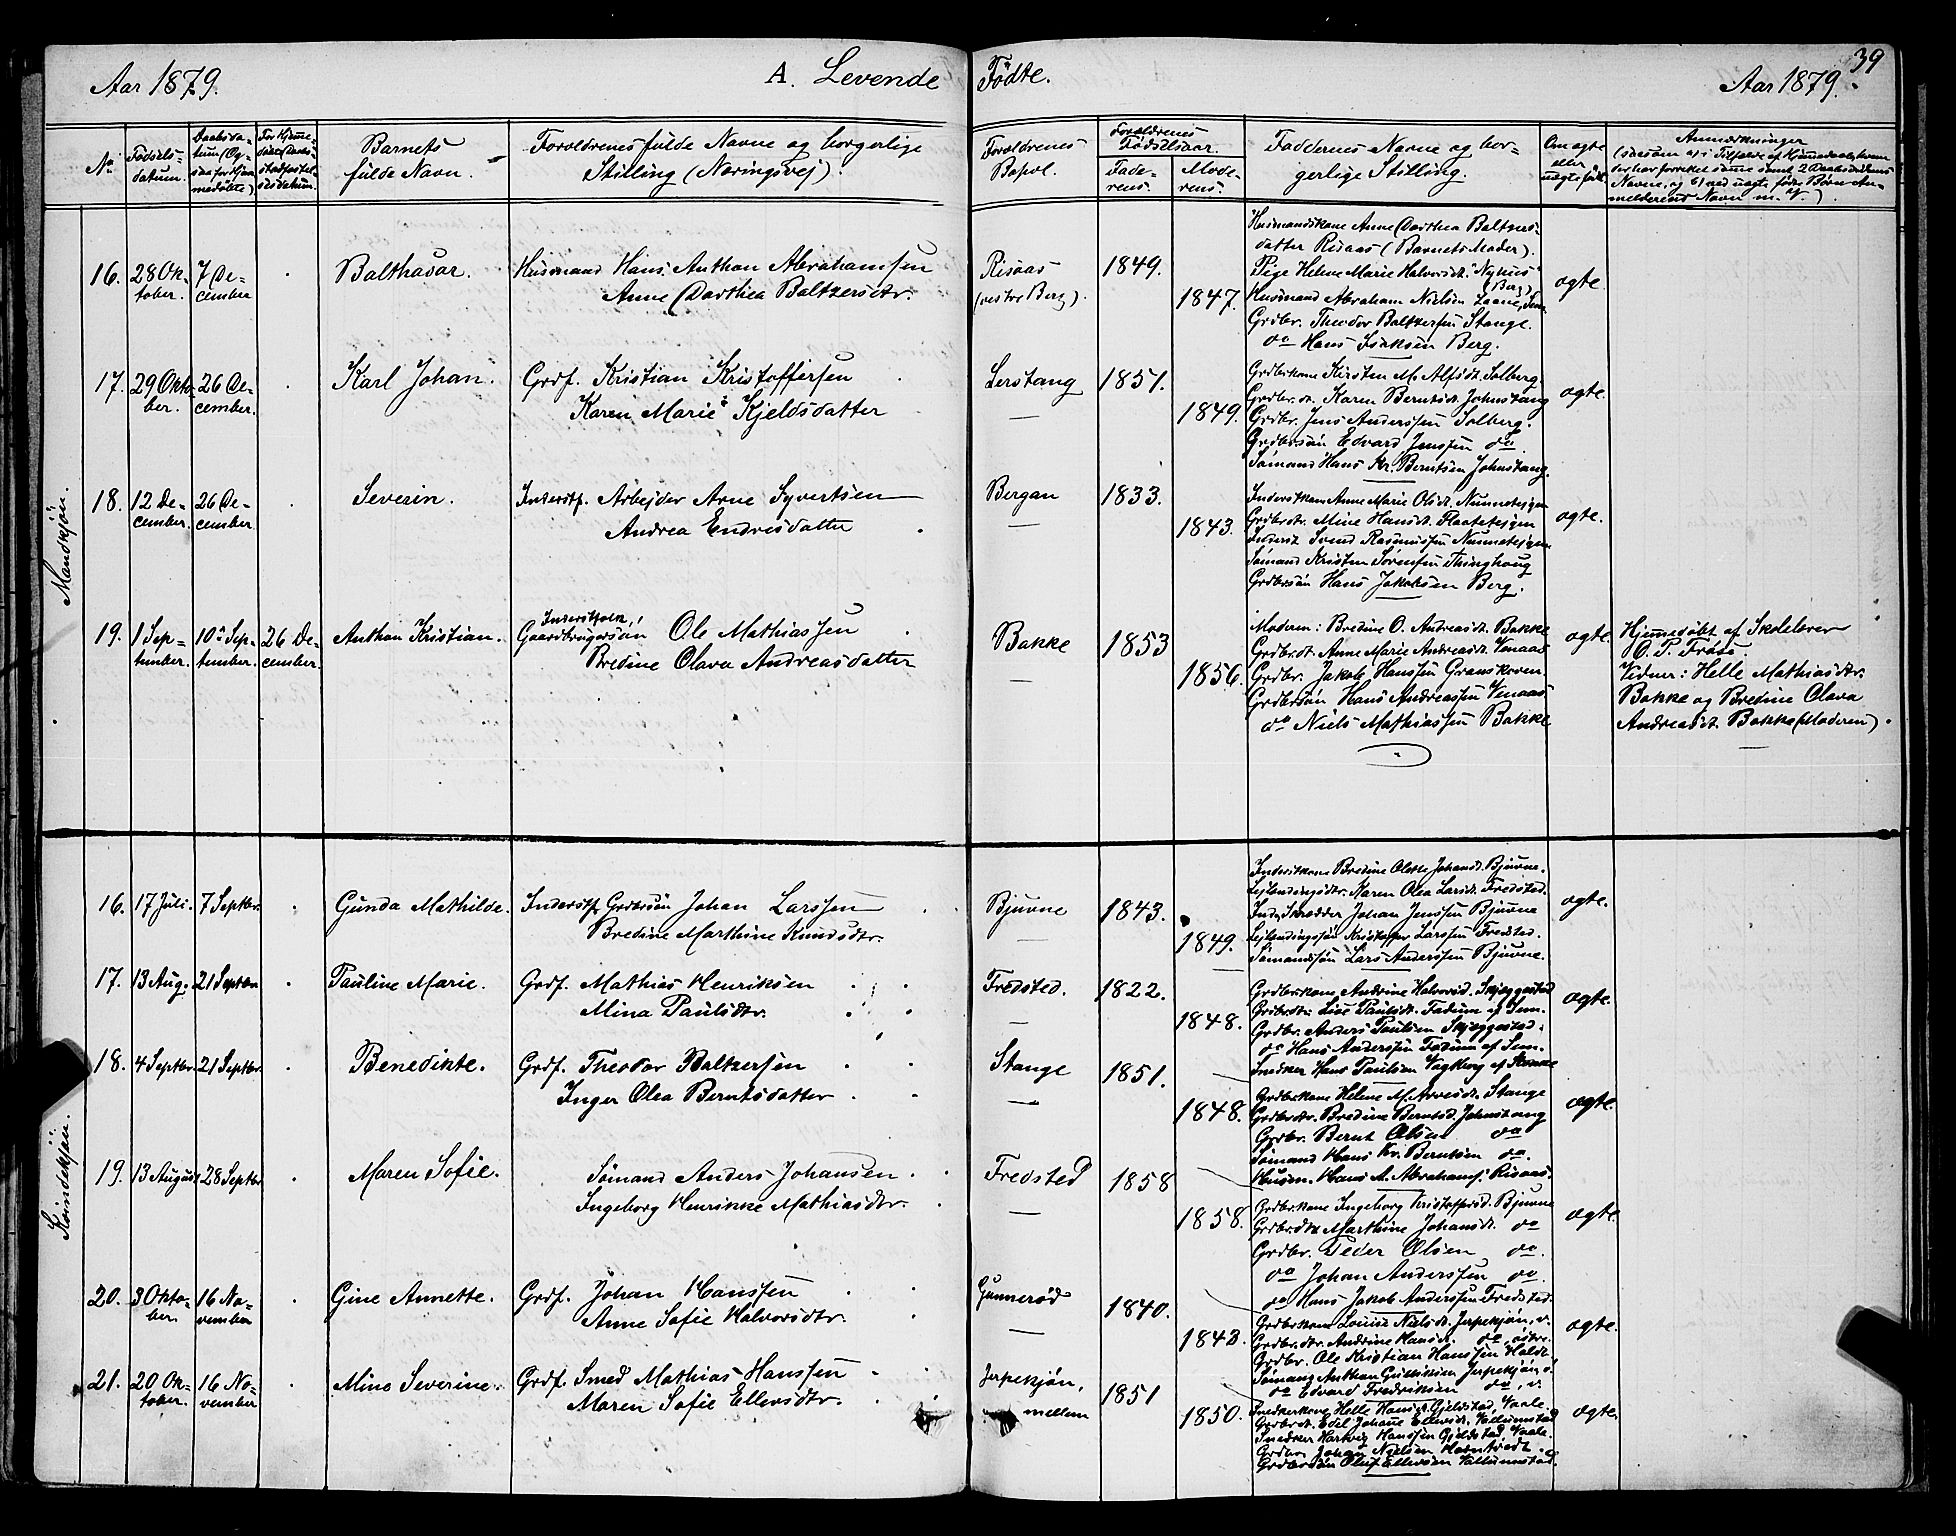 39
Aar 1879. A. Levende Fødte. Aar 1879.
No
Fødsels-
datum.
Daabsda-
tum (Og-
saa for Hjem-
medøbte)
For Hjemme-
døbte Daabs-
stadfæstel-
sesdatum.
Barnets
fulde Navn.
Forældrenes fulde Navne og borgerlige
Stilling (Næringsvej).
Forældrenes
Bopæl.
Forældrenes
Fødselsaar.
Fade-
rens.
Mode-
rens.
Faddernes Navne og bor-
gerlige Stilling.
Om ægte
eller
uægte født.
Anmærkninger
(saasom a) i Tilfælde af Hjemmedaab, hvem
der har forrettet samme samt 2 Daabsvidners
Navne, og b) ved uægte fødte Børn An-
melderens Navn m. V.).
Mandkjøn.
16. 28 Ok-
tober. 7 De-
cember
Balthasar.
Husmand Hans Anthon Abrahamsen
Anne Dorthea Baltzersdtr.
Risaas
(vestre Berg).
1849.
1847.
Husmandskone Anne Dorthea Baltzers-
datter Risaas (Barnets Moder).
Pige Helene Marie Halvorsdt. Nyhus
(Berg)
Husmand Abraham Nielsen Laane, Sem.
Grdbr. Theodor Baltzersen Stange.
do Hans Isaksen Berg.
ægte.
17. 29 Okto-
ber. 26 De-
cember.
Karl Johan.
Grdf. Kristian Kristoffersen
Karen Marie Kjeldsdatter
Lerstang
1851.
1849.
Grdbrkone Kirsten M. Alfsdt. Solberg.
Grdbr.dt. Karen Berntsdt. Johnstang
Grdbr. Jens Anderssen Solberg.
Grdbrsøn Edvard Jenssen do
Sømand Hans Kr. Berntsen Johnstang.
ægte.
18. 12 De-
cember. 26 De-
cember
Severin.
Inderstf. Arbejder Arne Syvertsen
Andrea Endresdatter
Bergan
1833.
1843.
Inderstkone Anne Marie Olsdt. Nunneteigen
Grdbrdtr. Mine Hansdt. Flaateteigen
Inderst Svend Rasmussen Nunneteigen
Sømand Kristen Sørensen Thinghoug
Grdbrsøn Hans Jakobsen Berg.
ægte.
19. 1 Sep-
tember. 10de Sep-
tember. 26 De-
cember.
Anthon Kristian.
Inderstfolk,
Gaardbrugersøn Ole Mathiassen
Bredine Olava Andreasdatter
Bakke
1853
1856.
Moderen: Bredine O. Andreasdt. Bakke
Grdbr.dt. Anne Marie Andreasdt. Venaas
Grdbr. Jakob Hanssen Granskoven.
Grdbrsøn Hans Andreassen Venaas
do Niels Mathiassen Bakke
ægte.
Hjemmedøbt af Skolelærer
O. P. Frøse
Vidner: Helle Mathiasdtr.
Bakke og Bredine Olava
Andreasdt. Bakke (Moderen).
Kvindekjøn.
16. 17 Juli. 7 Septbr.
Gunda Mathilde.
Inderstf. Grdbrsøn Johan Larssen
Bredine Marthine Knudsdtr.
Bjuvne
1843.
1849.
Inderstkone Bredine Olette Johansdt. Bjuvne.
Lejlændingsdtr. Karen Olea Larsdt. Fredsted.
Ind. Skrædder Johan Jenssen Bjuvne
Lejlændingssøn Kristoffer Larssen Fredsted.
Sømandssøn Lars Anderssen Bjuvne.
ægte.
17. 13 Aug. 21 Septbr.
Pauline Marie.
Grdf. Mathias Henriksen
Mina Paulsdtr.
Fredsted.
1822.
1848.
Grdbrkone Andrine Halvorsd. Skjeggestad
Grdbrdtr. Live Paulsdt. Fadum af Sem.
Grdbr. Anders Paulsen Skjeggestad.
do Hans Anderssen Fadum af Sem.
Snedker Hans Paulsen Vagberg af
ægte.
18. 4 Septbr. 21 Septbr.
Benedikte.
Grdf. Theodor Baltzersen
Inger Olea Berntsdatter
Stange
1851.
1848.
Grdbrkone Helene M. Arvesdt. Stange
Grdbrdtr. Bredine Berntsd. Johnstang
Grdbr. Bernt Olsen do
Sømand Hans Kr. Berntsen do.
Husm. Hans A. Abrahams. Risaas.
ægte.
19. 13 August 28 Septbr.
Maren Sofie.
Sømand Anders Johansen
Ingeborg Henrikke Mathiasdtr.
Fredsted
1858
1858.
Grdbrkone Ingeborg Kristoffersd. Bjuvne
Grdbrdtr Marthine Johansdt. do
Grdbr. Peder Olsen do.
do Johan Anderssen do.
do Hans Jakob Anderssen Fredsted.
ægte.
20. 3 Okto-
ber. 16 No-
vember
Gine Annette.
Grdf. Johan Hanssen
Anne Sofie Halvorsdtr.
Gunnerød
1840.
1843.
Grdbrkone Lovise Nielsdt. Jerpekjøn, v.
Grdbrdtr. Andrine Hansdt. do, østre.
Grdbr. Ole Kristian Hanssen Holdt.
Sømand Anthon Gulliksen Jerpekjøn ø.
do Edvard Fredriksen do, v.
ægte.
21. 20 Ok-
tober. 16 No-
vember
Mina Severine.
Grdf. Smed Mathias Hanssen
Maren Sofie Ellersdtr.
Jerpekjøn,
mellem
1851
1850.
Snedkerkone Helle Hansdt. Gjelstad, Vaale.
Grdbrdt. Edel Johanne Ellersdt. Vallumstad
Snedker Hartvig Hanssen Gjelstad, Vaale.
Grdbr. Johan Nielsen Horntvedt.
Grdbrsøn Oluf Ellersen Vallumstad.
ægte.